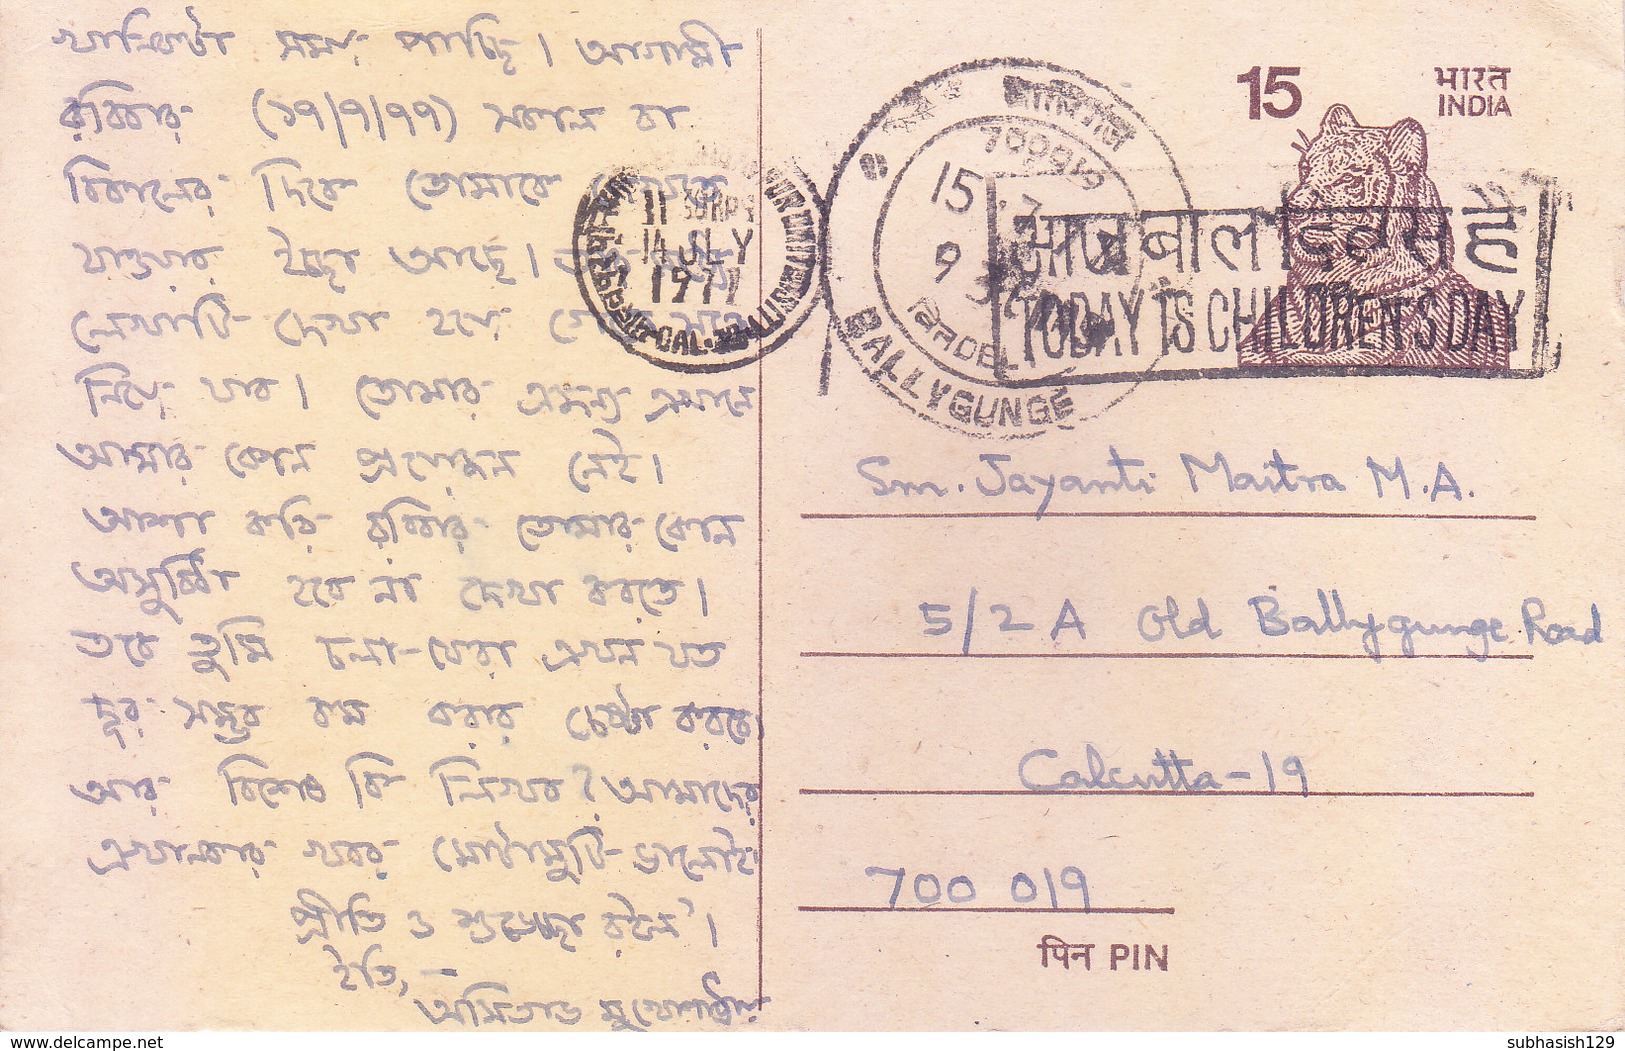 খানিকটা সময় পাচ্ছি। আগামী
রবিবার (১৭/৭/৭৭) সকাল বা
বিকালের দিকে তোমাকে
যাওয়ার ইচ্ছা আছে।
লেখাটি দেখা হলে
নিয়ে যাব। তোমার এজন্য এখানে
আসার কোন প্রয়োজন নেই।
আশা করি রবিবার তোমার কোন
অসুবিধা হবে না দেখা করতে।
তবে তুমি চলা-ফেরা এখন যত
দূর সম্ভব কম করার চেষ্টা করবে।
আর বিশেষ কি লিখব? আমাদের
এখানকার খবর মোটামুটি ভালোই।
প্রীতি ও শুভেচ্ছা রইল।
ইতি,—
অমিতাভ মুখোপাধ্যায়
11 30
14 JLY
1977
CAL.
15 7
9
BALLYGUNGE
आज बाल दिवस है
TODAY IS CHILDREN'S DAY
15
भारत
INDIA
Sm. Jayanti Maitra M.A.
5/2A Old Ballygunge Road
Calcutta-19
700 019
पिन PIN
www.delcampe.net
subhasish129